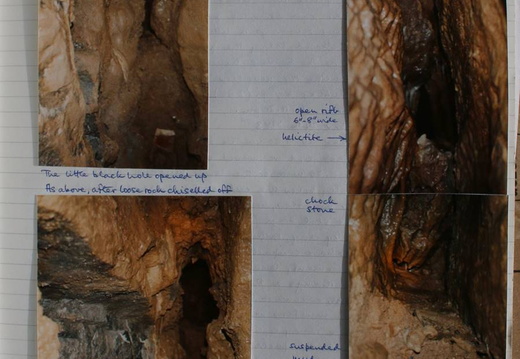 The little black hole opened up
As above, after loose rock chiselled off
open rift
6"-8" wide
helictite →
chock
stone
suspended